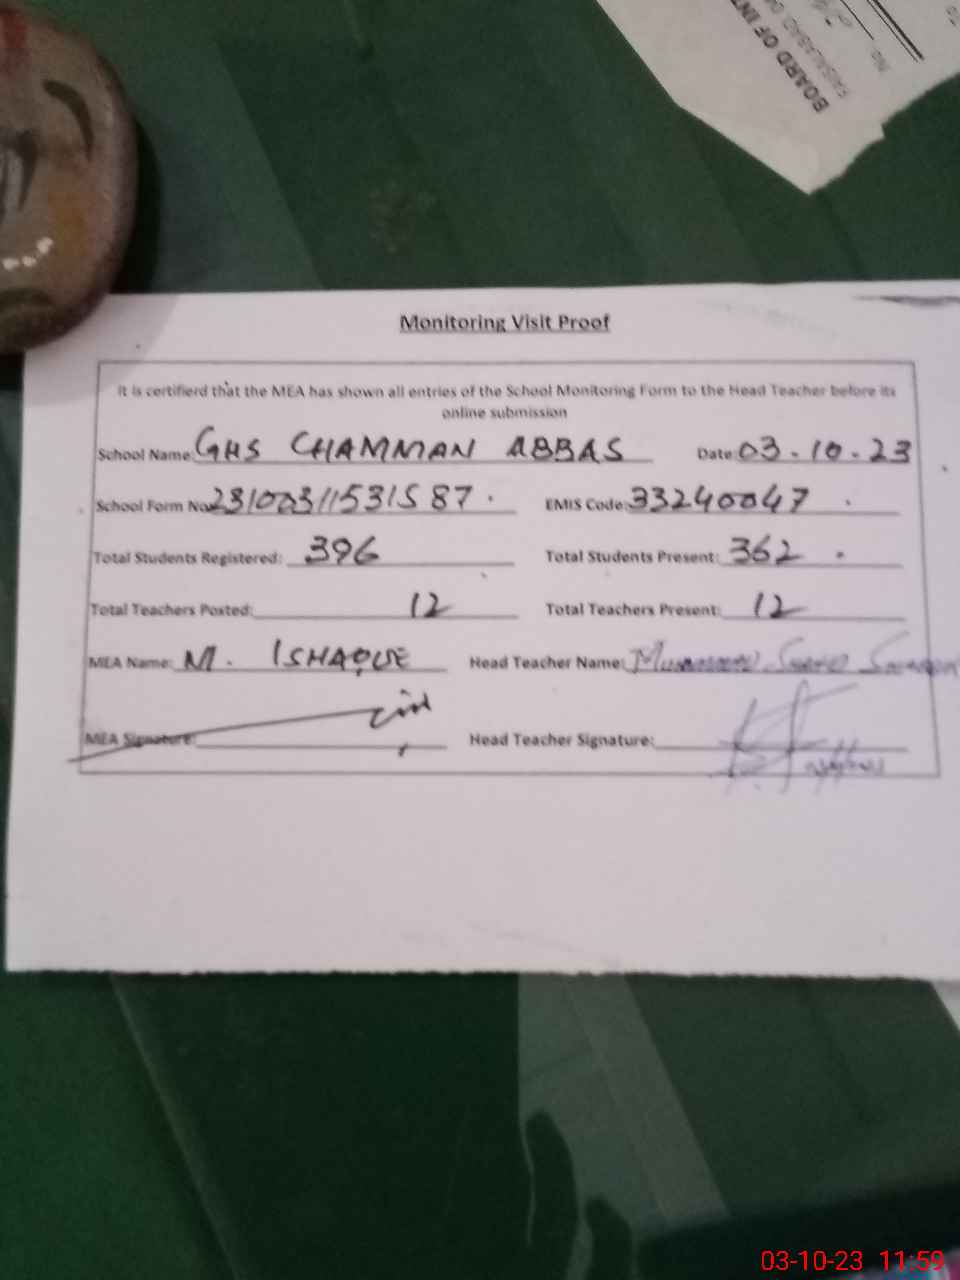 BOARD OF INT
FAISALABAD
No.
Monitoring Visit Proof
It is certifierd that the MEA has shown all entries of the School Monitoring Form to the Head Teacher before its
online submission
School Name: GHS CHAMMAN ABBAS Date: 03-10-23
School Form No: 23100311531587 . EMIS Code: 33240047 .
Total Students Registered: 396 Total Students Present: 362 .
Total Teachers Posted: 12 Total Teachers Present: 12
MEA Name: M. ISHAQUE Head Teacher Name:
MEA Signature: Head Teacher Signature:
03-10-23 11:59